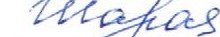 Шарая